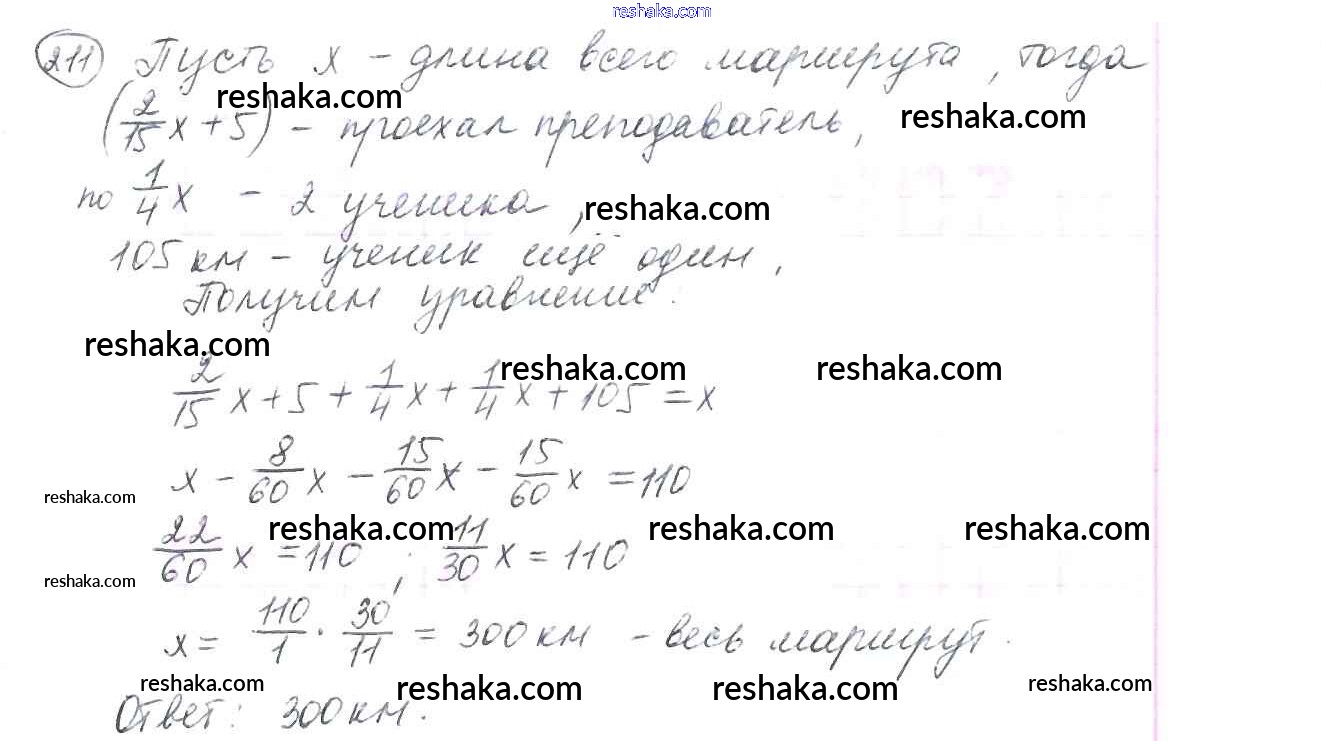 reshaka.com
211 Пусть x - длина всего маршрута, тогда
reshaka.com
(2/15 x + 5) - проехал преподаватель, reshaka.com
по 1/4 x - 2 ученика, reshaka.com
105 км - ученик ещё один,
Получим уравнение:
reshaka.com
reshaka.com reshaka.com
2/15 x + 5 + 1/4 x + 1/4 x + 105 = x
x - 8/60 x - 15/60 x - 15/60 x = 110
reshaka.com
reshaka.com reshaka.com reshaka.com
22/60 x = 110 ; 11/30 x = 110
reshaka.com
x = 110/1 · 30/11 = 300 км - весь маршрут.
reshaka.com reshaka.com reshaka.com reshaka.com
Ответ: 300 км.